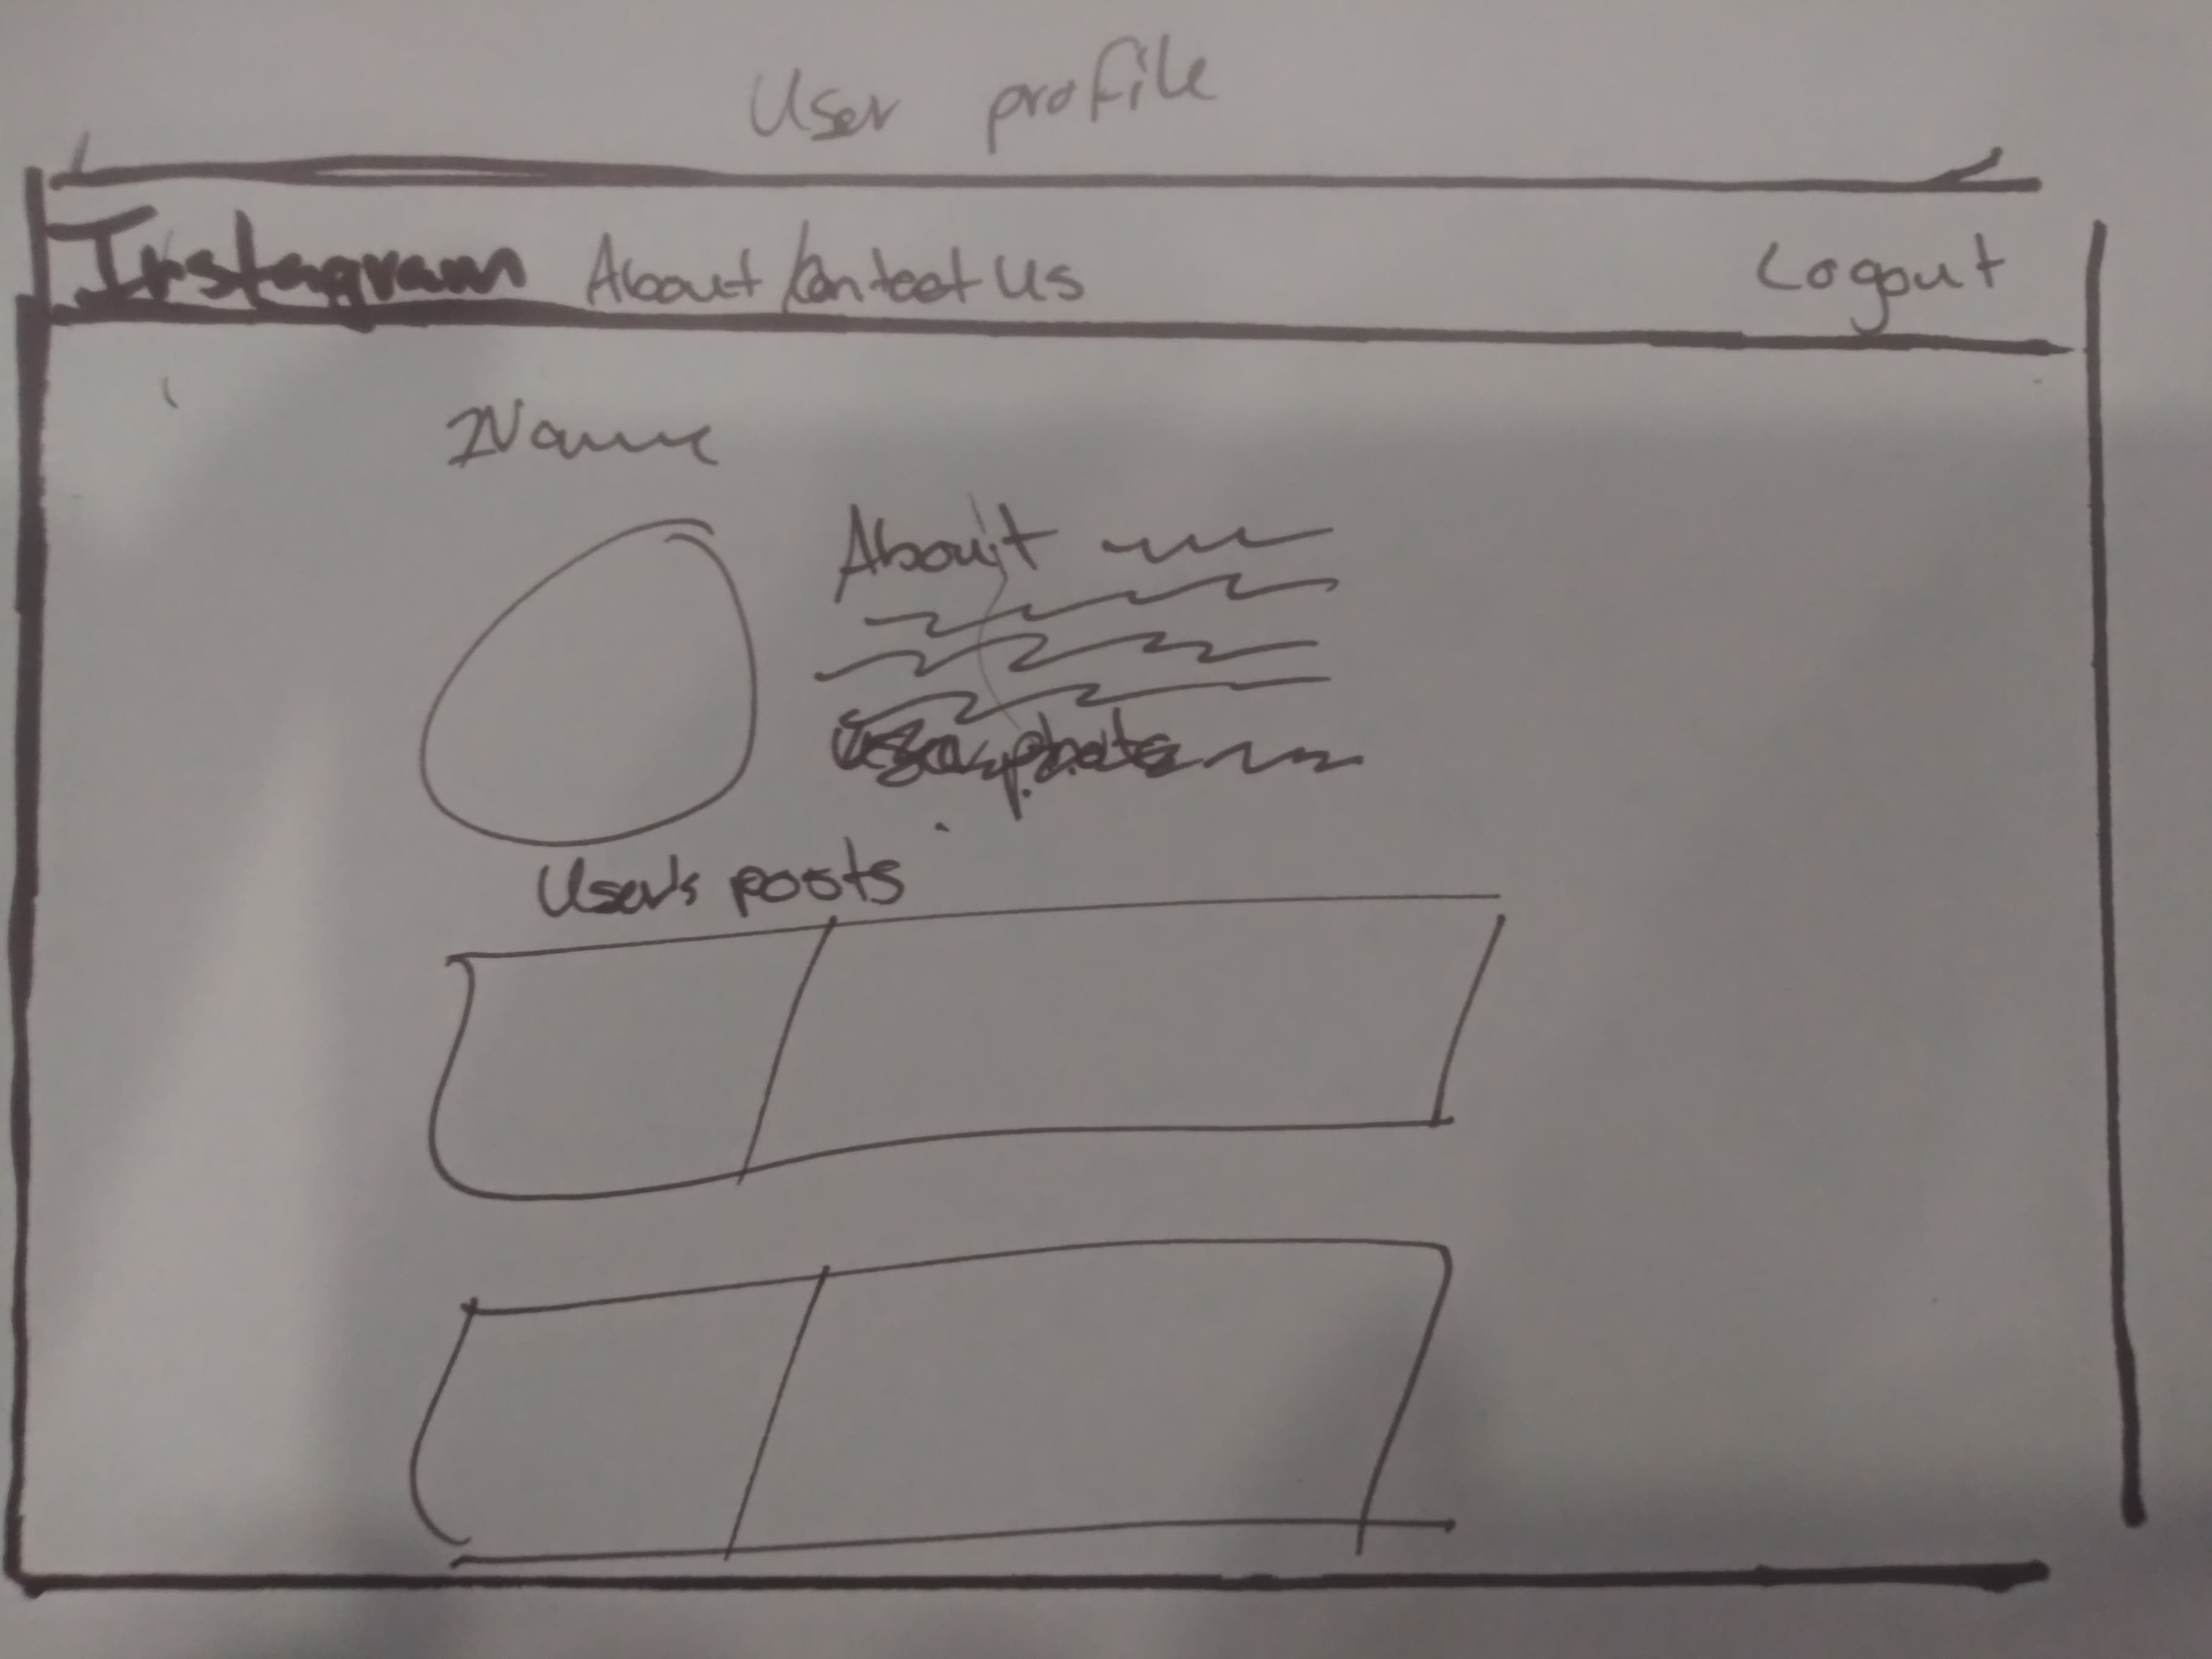 User profile
Instagram About Contact Us Logout
Name
About
User's posts